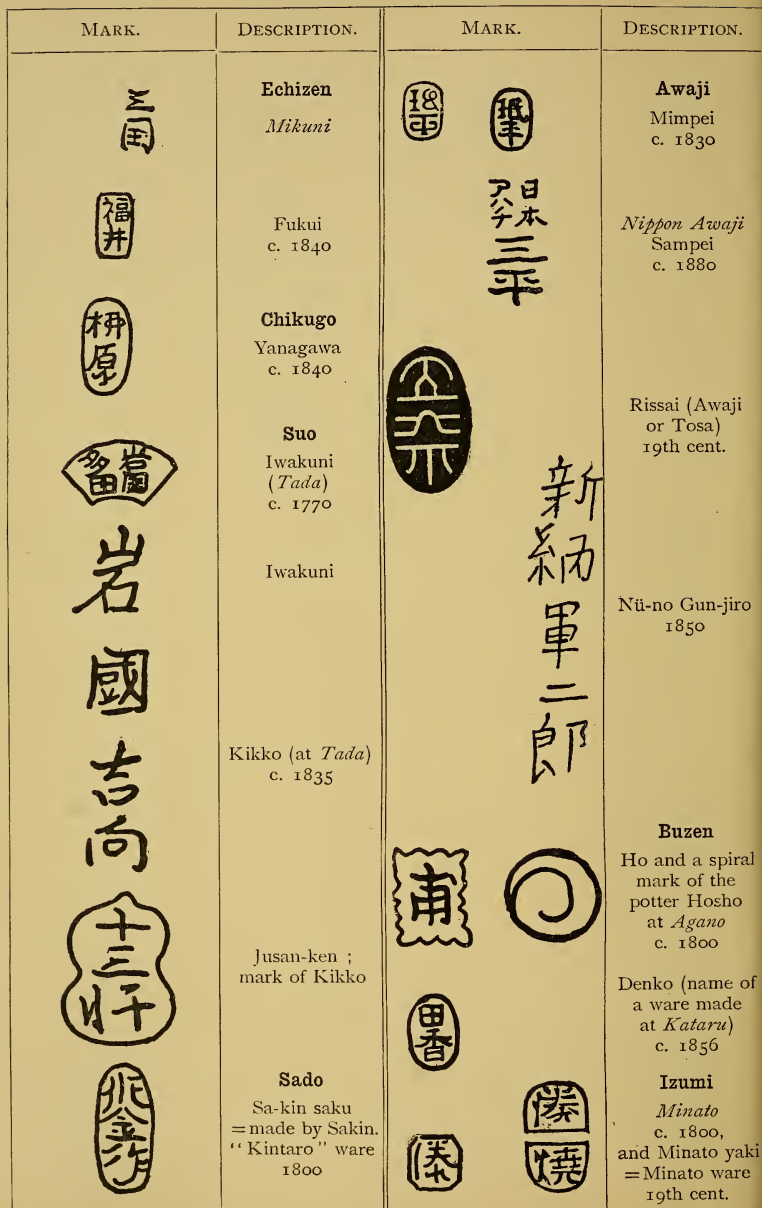 MARK.
DESCRIPTION.
三国
Echizen
Mikuni
福井
Fukui
c. 1840
栁原
Chikugo
Yanagawa
c. 1840
Suo
Iwakuni
(Tada)
c. 1770
岩
國
Iwakuni
吉
向
Kikko (at Tada)
c. 1835
十
三
軒
Jusan-ken ;
mark of Kikko
Sado
Sa-kin saku
=made by Sakin.
“Kintaro” ware
1800
MARK.
DESCRIPTION.
珉平
珉平
Awaji
Mimpei
c. 1830
日本
アハチ
三
平
Nippon Awaji
Sampei
c. 1880
Rissai (Awaji
or Tosa)
19th cent.
新
納
軍
二
郎
Nü-no Gun-jiro
1850
甫
Buzen
Ho and a spiral
mark of the
potter Hosho
at Agano
c. 1800
田香
Denko (name of
a ware made
at Kataru)
c. 1856
湊
燒
湊
Izumi
Minato
c. 1800,
and Minato yaki
=Minato ware
19th cent.